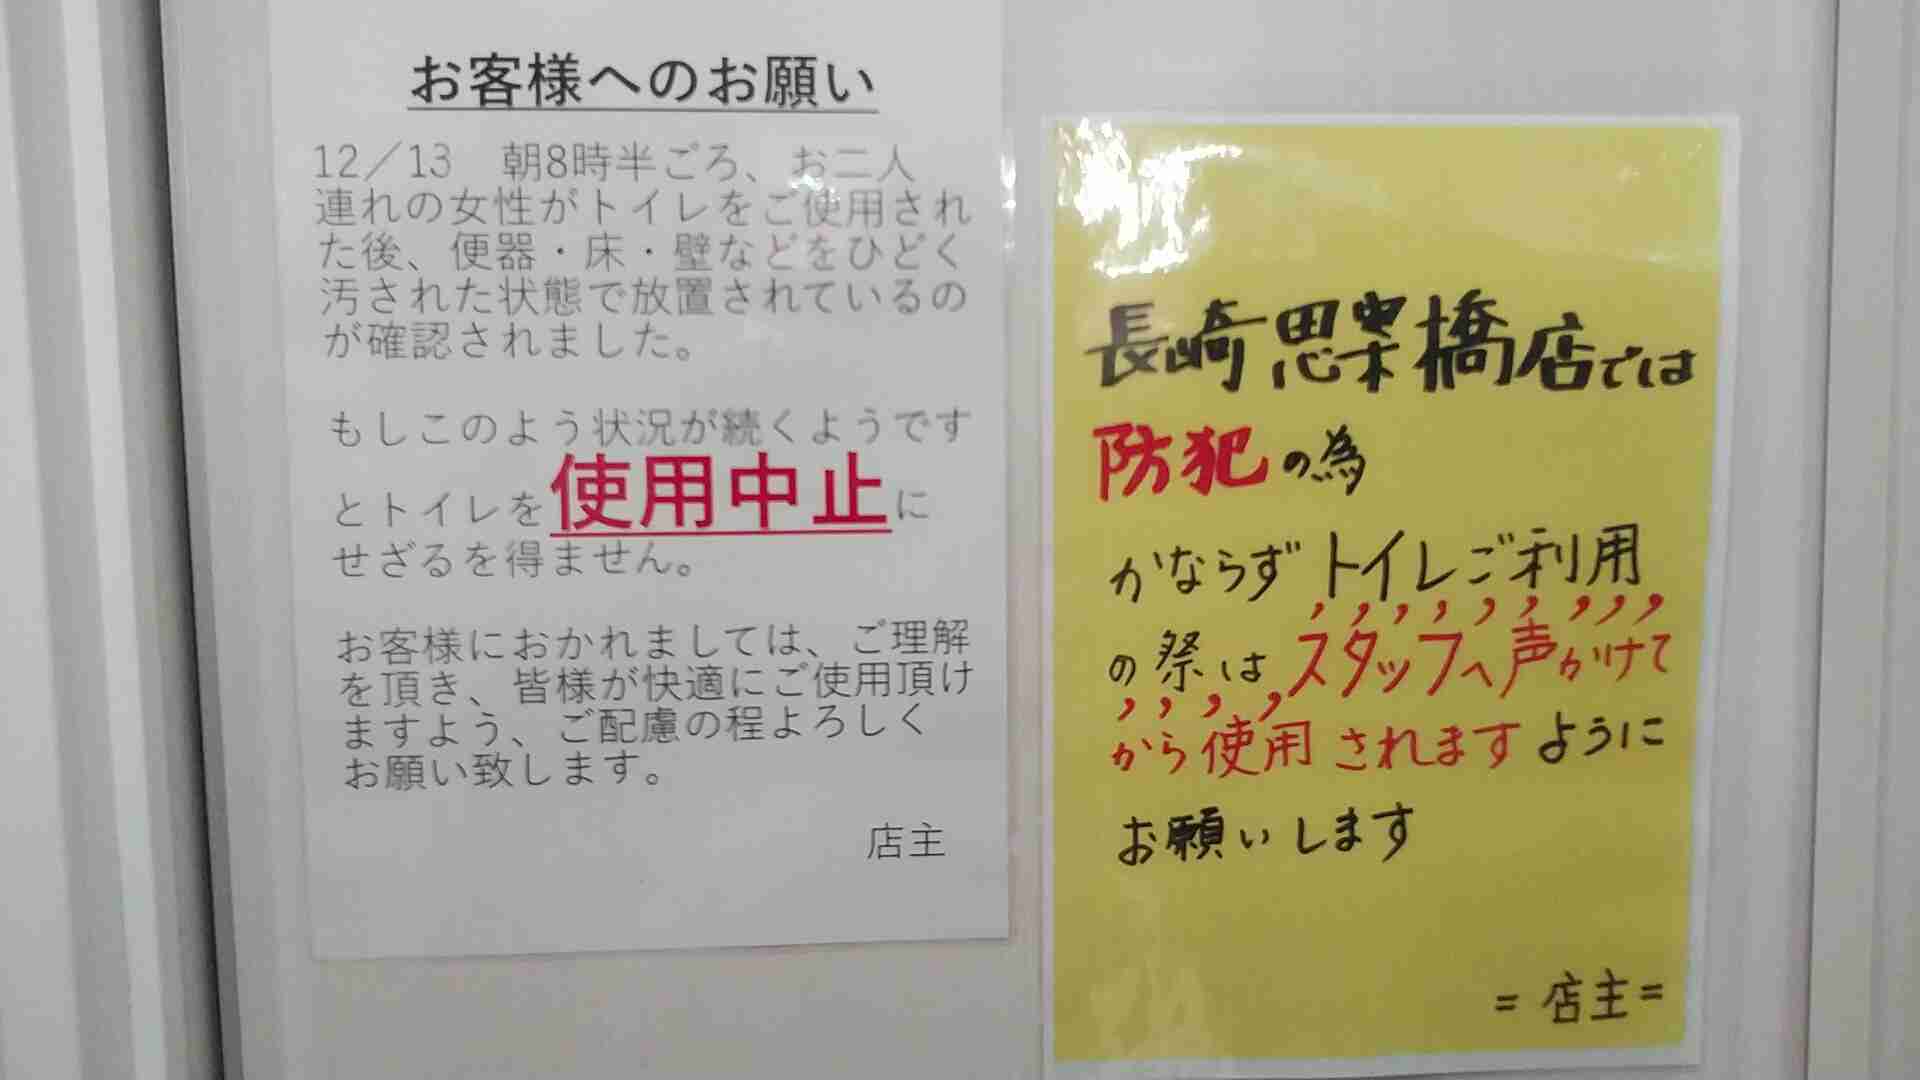 お客様へのお願い
12／13　朝8時半ごろ、お二人
連れの女性がトイレをご使用され
た後、便器・床・壁などをひどく
汚された状態で放置されているの
が確認されました。
もしこのよう状況が続くようです
とトイレを使用中止に
せざるを得ません。
お客様におかれましては、ご理解
を頂き、皆様が快適にご使用頂け
ますよう、ご配慮の程よろしく
お願い致します。
店主
長崎思案橋店では
防犯の為
かならずトイレご利用
の祭はスタッフへ声かけて
から使用されますように
お願いします
=店主=